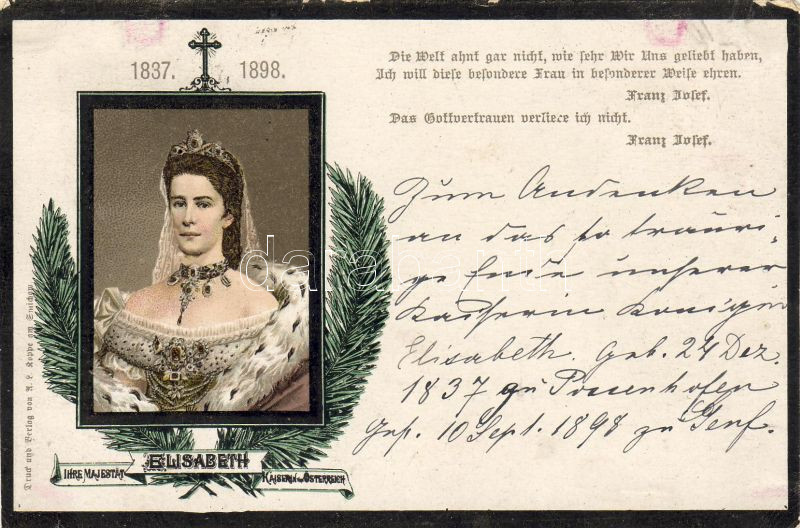 1837. 1898.
Die Welt ahnt gar nicht, wie sehr Wir Uns geliebt haben,
Ich will diese besondere Frau in besonderer Weise ehren.
Franz Josef.
Das Gottvertrauen verliere ich nicht.
Franz Josef.
Zum Andenken
an das so trauri-
ge Ende unserer
Kaiserin Königin
Elisabeth. Geb. 24 Dez.
1837 zu Possenhofen
Gest. 10 Sept. 1898 zu Genf.
IHRE MAJESTÄT
ELISABETH
KAISERIN VON ÖSTERREICH
Druck und Verlag von R. L. Koppe am Smichow.
darabanth